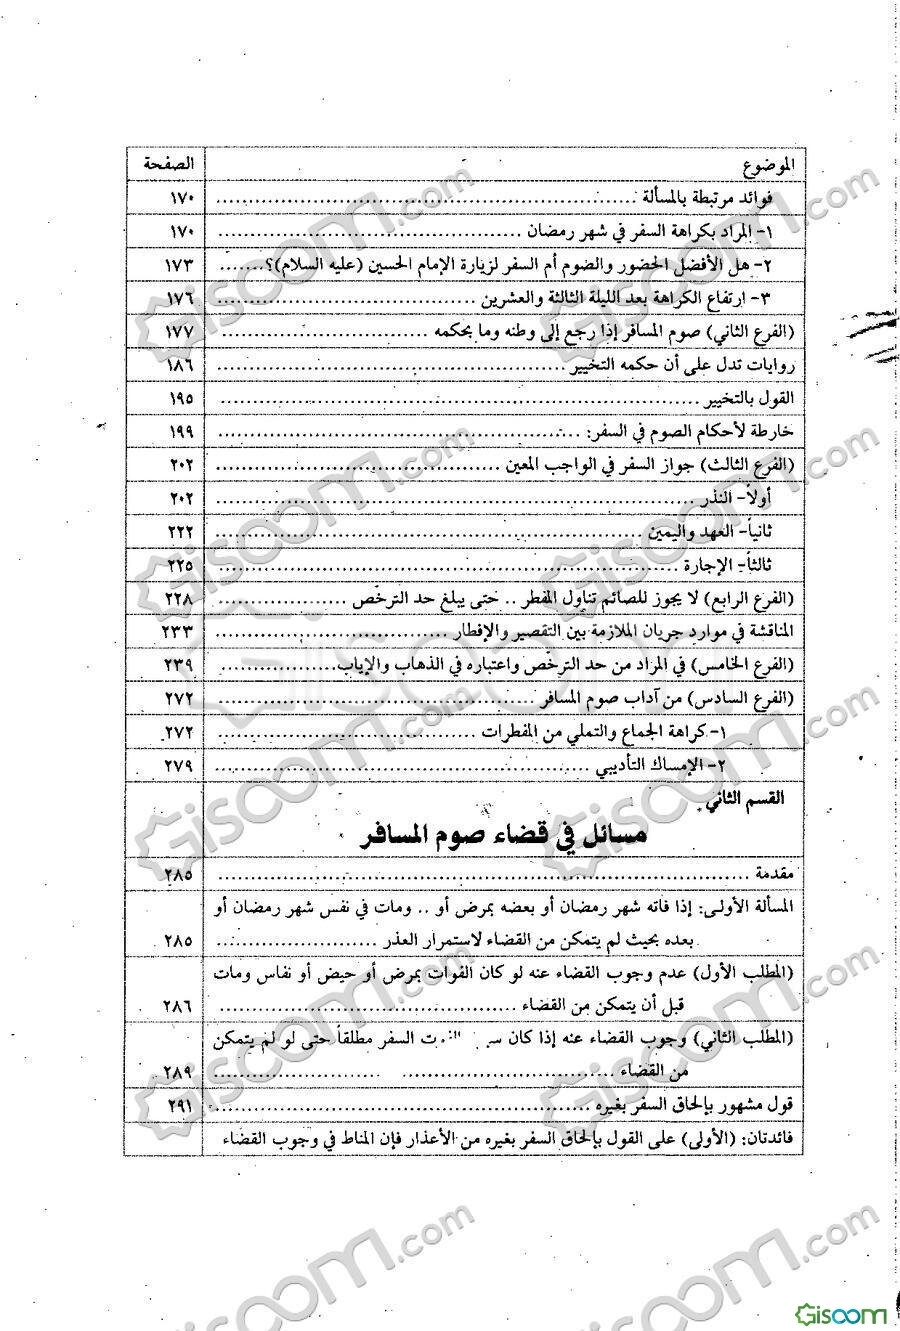 الموضوع الصفحة
فوائد مرتبطة بالمسألة ................ ١٧٠
١- المراد بكراهة السفر في شهر رمضان ................ ١٧٠
٢- هل الأفضل الحضور والصوم أم السفر لزيارة الإمام الحسين (عليه السلام)؟....... ١٧٣
٣- ارتفاع الكراهة بعد الليلة الثالثة والعشرين ................ ١٧٦
(الفرع الثاني) صوم المسافر إذا رجع إلى وطنه وما بحكمه ................ ١٧٧
روايات تدل على أن حكمه التخيير ................ ١٨٦
القول بالتخيير ................ ١٩٥
خارطة لأحكام الصوم في السفر: ................ ١٩٩
(الفرع الثالث) جواز السفر في الواجب المعين ................ ٢٠٢
أولاً- النذر ................ ٢٠٢
ثانياً- العهد واليمين ................ ٢٢٢
ثالثاً- الإجارة ................ ٢٢٥
(الفرع الرابع) لا يجوز للصائم تناول المفطر .. حتى يبلغ حد الترخّص ................ ٢٢٨
المناقشة في موارد جريان الملازمة بين التقصير والإفطار ................ ٢٣٣
(الفرع الخامس) في المراد من حد الترخّص واعتباره في الذهاب والإياب ................ ٢٣٩
(الفرع السادس) من آداب صوم المسافر ................ ٢٧٢
١- كراهة الجماع والتملي من المفطرات ................ ٢٧٢
٢- الإمساك التأديبي ................ ٢٧٩
القسم الثاني
مسائل في قضاء صوم المسافر
مقدمة ................ ٢٨٥
المسألة الأولى: إذا فاته شهر رمضان أو بعضه بمرض أو .. ومات في نفس شهر رمضان أو
بعده بحيث لم يتمكن من القضاء لاستمرار العذر ................ ٢٨٥
(المطلب الأول) عدم وجوب القضاء عنه لو كان الفوات بمرض أو حيض أو نفاس ومات
قبل أن يتمكن من القضاء ................ ٢٨٦
(المطلب الثاني) وجوب القضاء عنه إذا كان السفر مطلقاً حتى لو لم يتمكن
من القضاء ................ ٢٨٩
قول مشهور بإلحاق السفر بغيره ................ ٢٩١
فائدتان: (الأولى) على القول بإلحاق السفر بغيره من الأعذار فإن المناط في وجوب القضاء
Giscoom.com
Giscoom